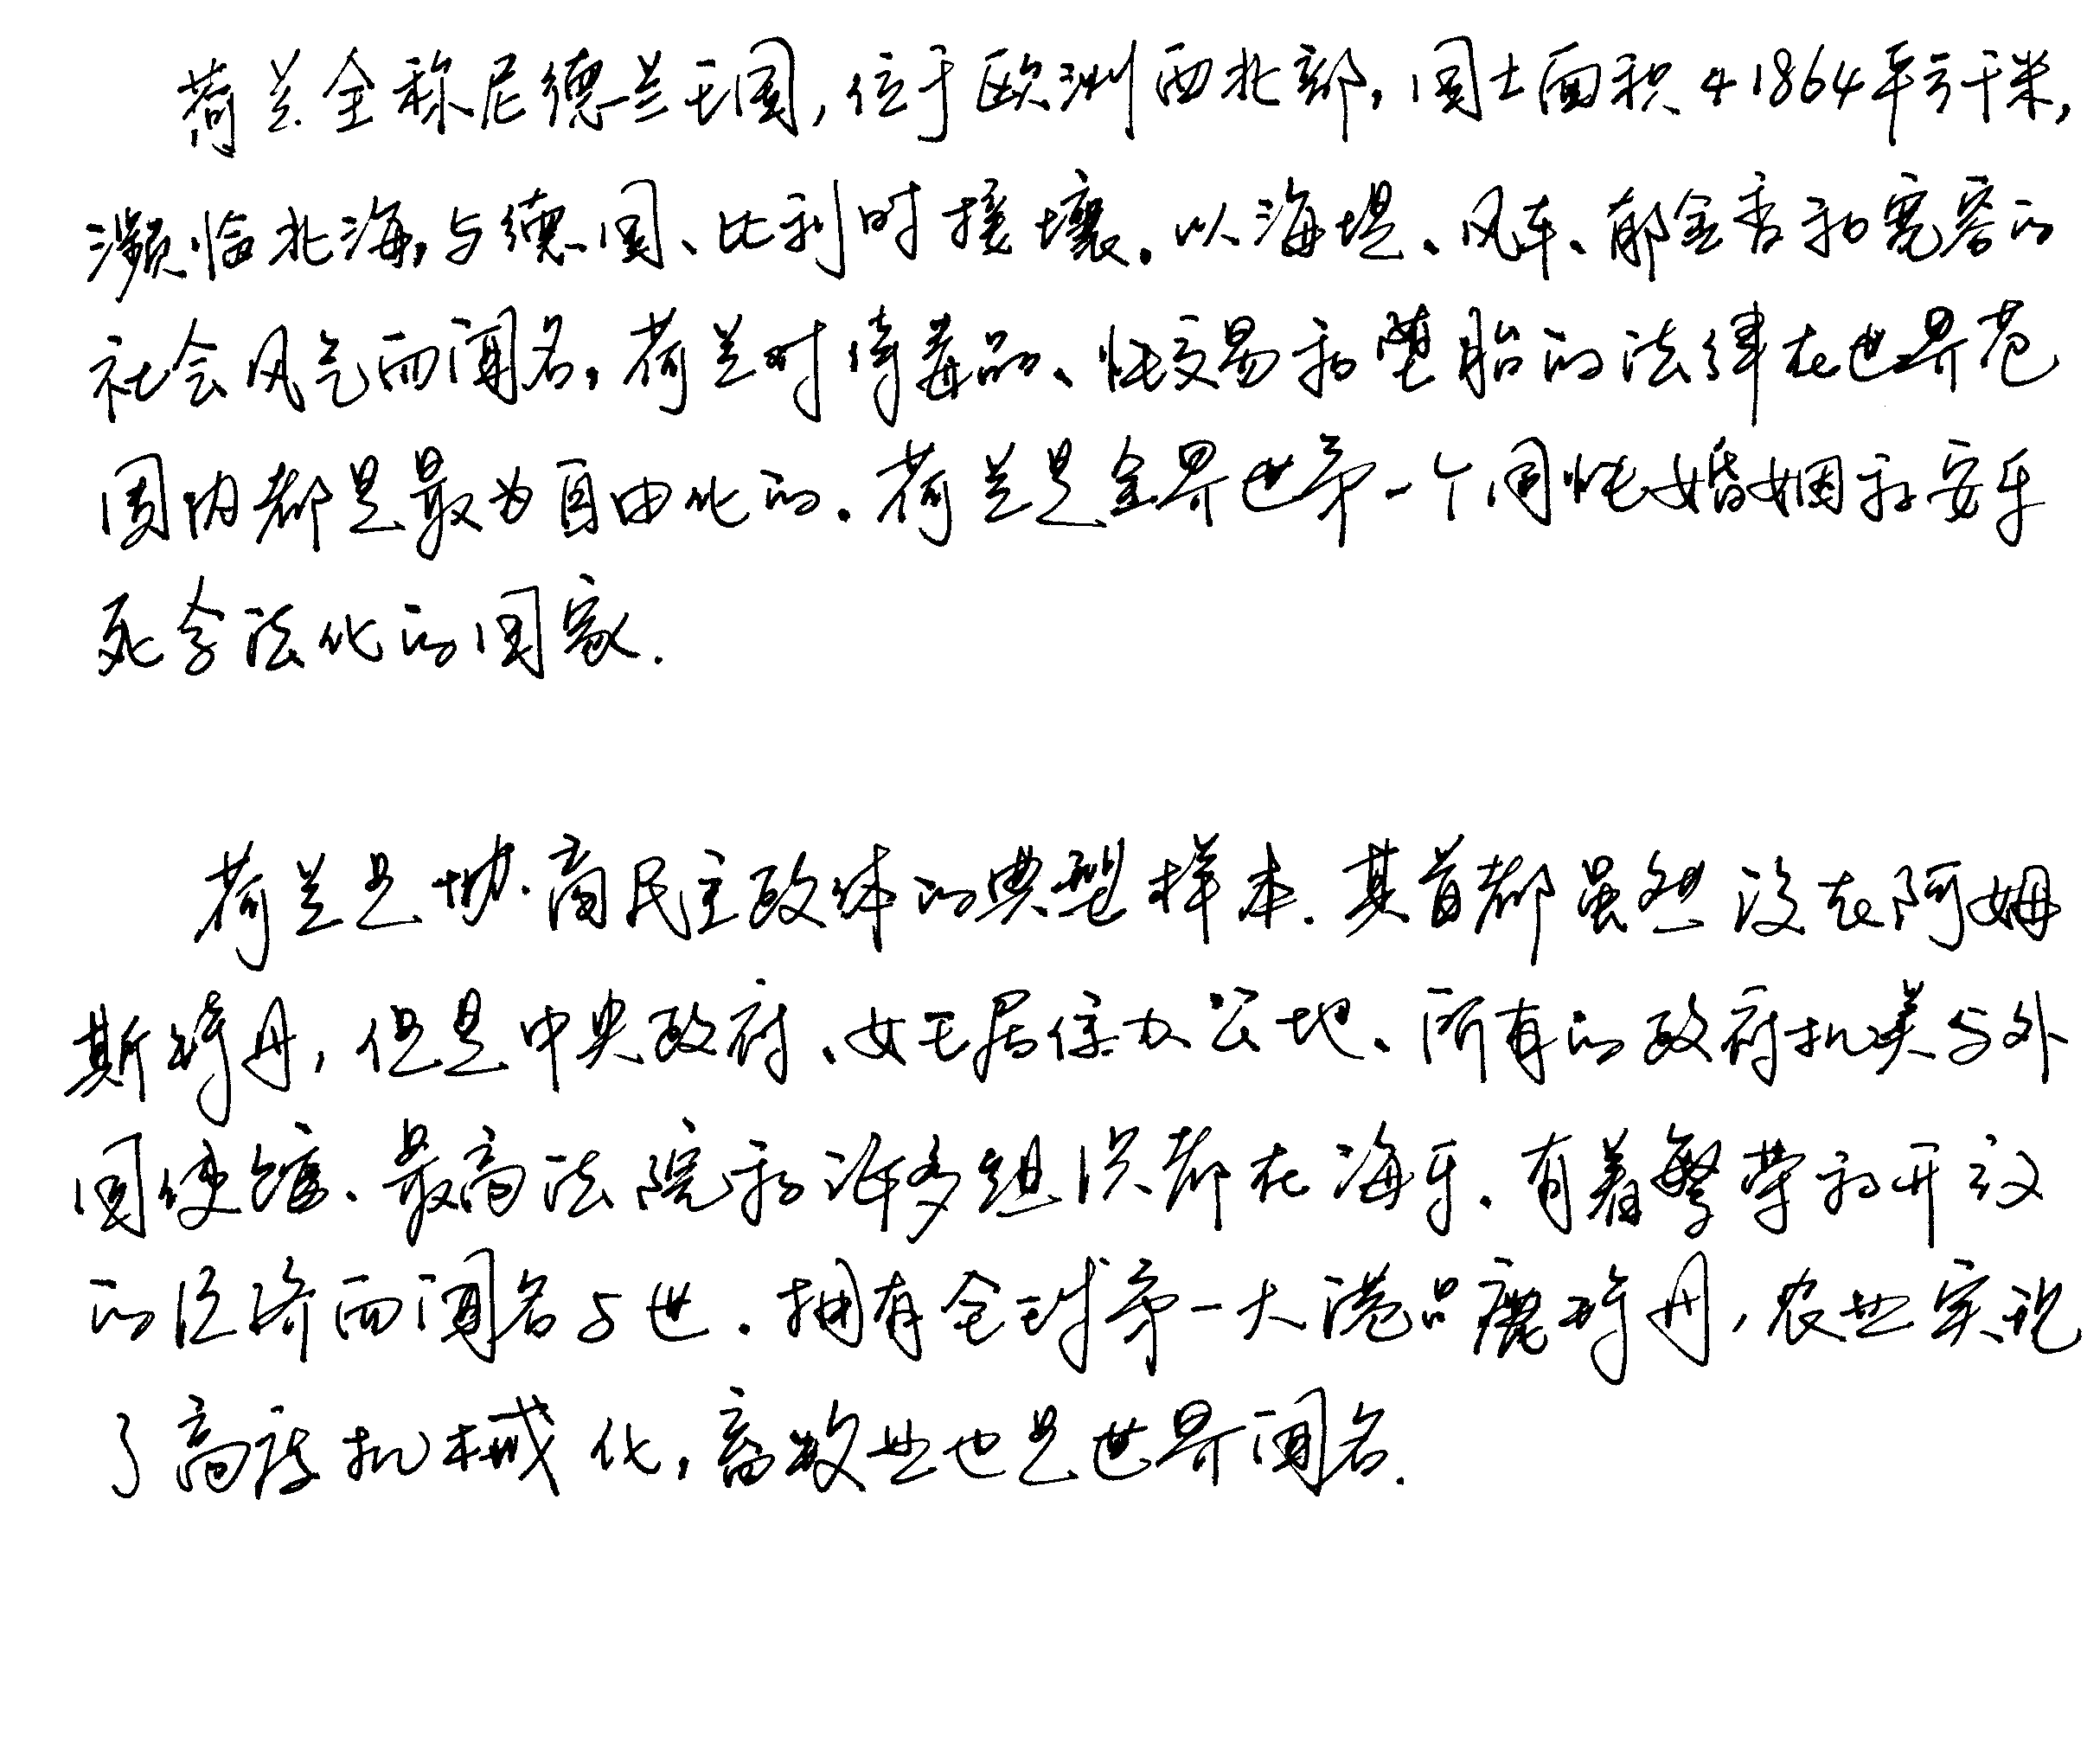 荷兰全称尼德兰王国,位于欧洲西北部,国土面积41864平方千米,
濒临北海,与德国、比利时接壤。以海堤、风车、郁金香和宽容的
社会风气而闻名,荷兰对待毒品、性交易和堕胎的法律在世界范
围内都是最为自由化的。荷兰是全界世第一个同性婚姻和安乐
死合法化的国家.
荷兰是协商民主政体的典型样本.其首都虽然设在阿姆
斯特丹,但是中央政府、女王居住办公地、所有的政府机关与外
国使馆、最高法院和许多组织都在海牙.有着繁荣和开放
的经济而闻名与世.拥有全球第一大港口鹿特丹,农业实现
了高度机械化,畜牧业也是世界闻名.